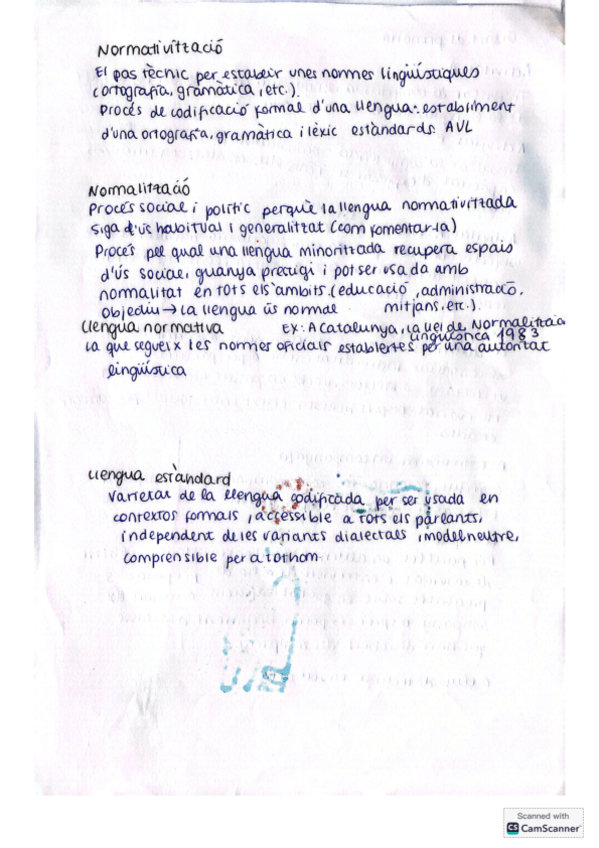 Normativització
El pas tècnic per establir unes normes lingüístiques
(ortografia, gramàtica i etc.).
Procés de codificació formal d'una llengua: establiment
d'una ortografia, gramàtica i lèxic estàndards AVL
Normalització
Procés social i polític perquè la llengua normativitzada
siga d'ús habitual i generalitzat (com fomentar-la)
Procés pel qual una llengua minoritzada recupera espais
d'ús social, guanya prestigi i pot ser usada amb
normalitat en tots els àmbits. (educació, administració,
Objectiu → la llengua ús normal mitjans, etc.).
Llengua normativa EX: A Catalunya, la llei de Normalització
lingüística 1983
La que segueix les normes oficials establertes per una autoritat
lingüística
Llengua estàndard
Varietat de la llengua codificada per ser usada en
contextos formals, accessible a tots els parlants,
independent de les variants dialectals i model neutre,
comprensible per a tothom
Scanned with
CS CamScanner